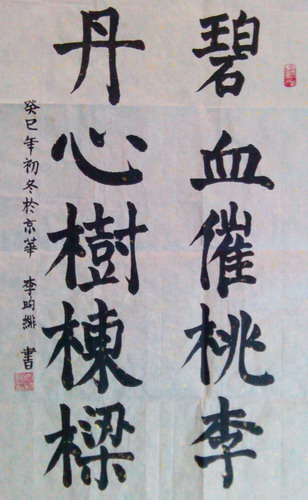 碧血催桃李
丹心樹棟樑
癸巳年初冬於京華 李昀緋 書